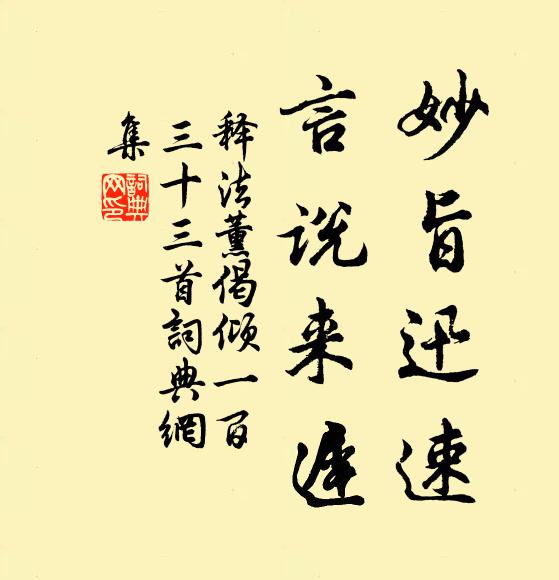 妙旨迅速
言说来遲
释法薰偈倾一百
三十三首詞典網
集
詞典
网印